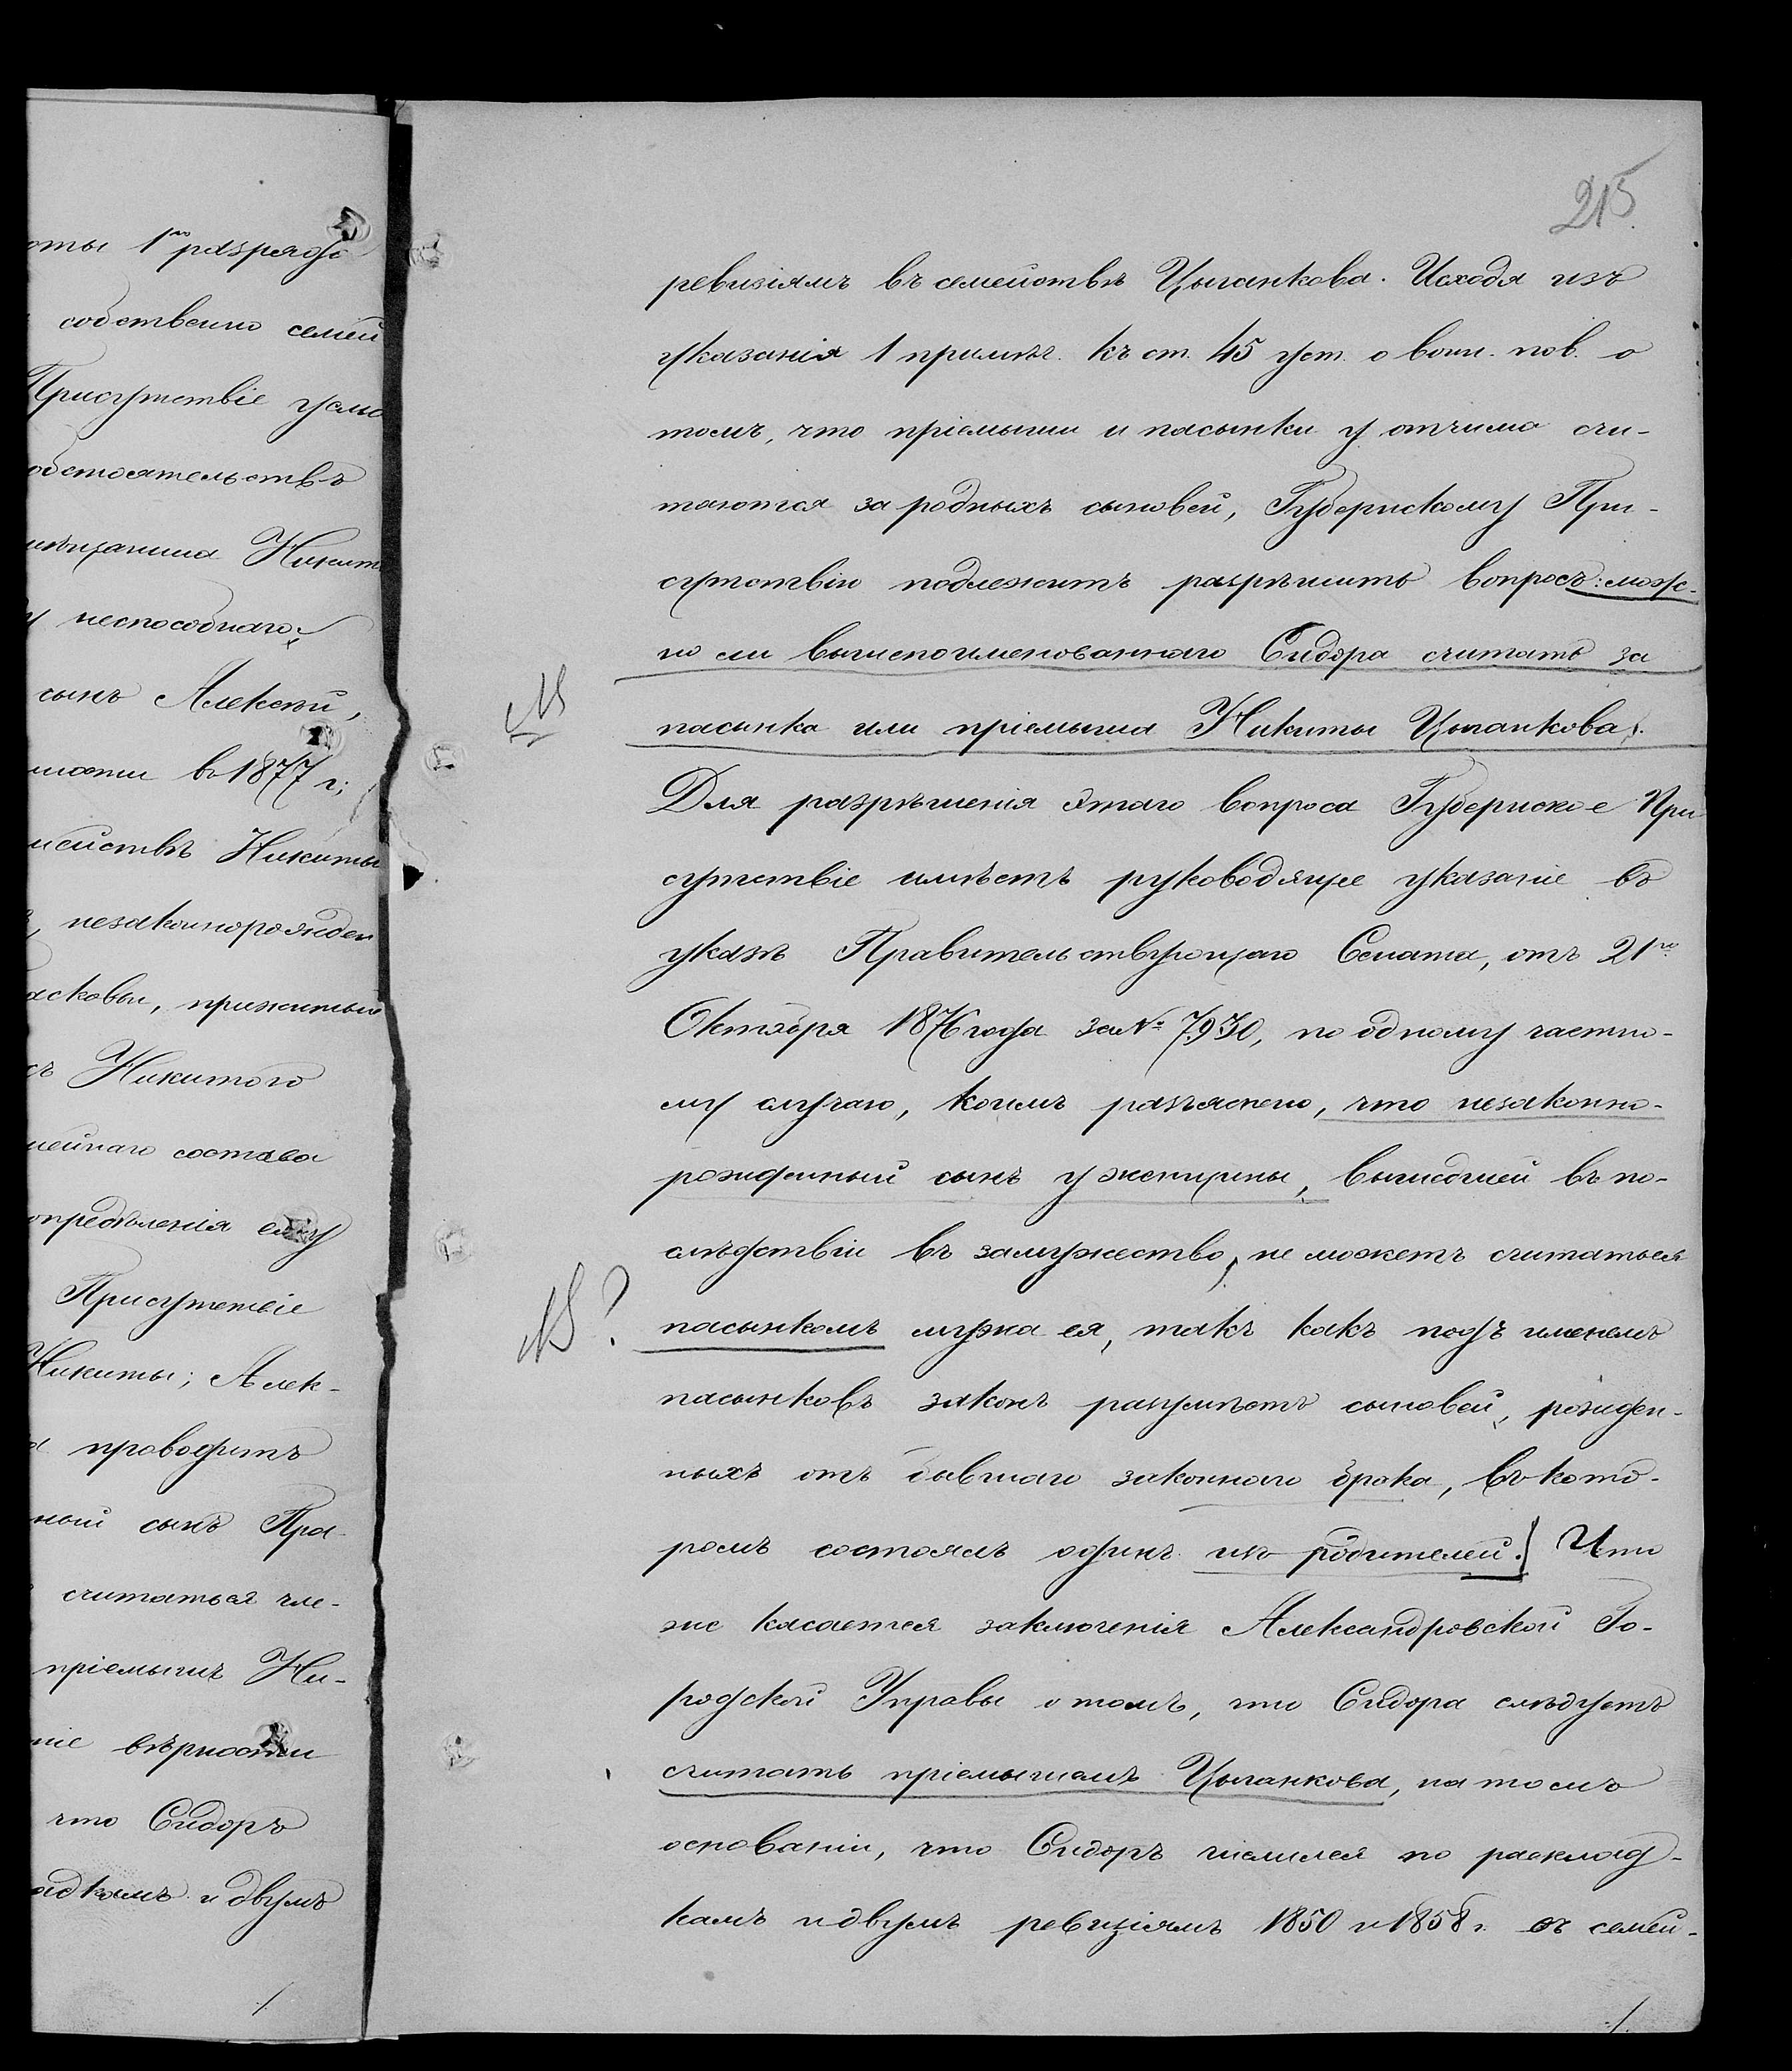 оты 1го разряда
собственно семей
Присутствіе усмо
обстоятельствъ
мѣщанина Никит
у неспособнаго;
сынъ Алексѣй,
въ 1877 г;
мействѣ Никиты
незаконнорожден
асковьи, прижитый
съ Никитою
мейнаго состава
опредѣленія ему
Присутствіе
Никиты; Алек-
а проводитъ
ный сынъ Пра-
считаться чле-
пріемышъ Ни-
ніе вѣрности
что Сидоръ
адкамъ и двумъ
215.
ревизіямъ въ семействѣ Цыганкова. Исходя изъ
указанія 1 примѣч. къ ст. 45 уст. о воин. пов. о
томъ, что пріемыши и пасынки у отчима счи-
таются за родныхъ сыновей, Губернскому При-
сутствію подлежитъ разрѣшить вопросъ: мож-
но ли вышепоименованнаго Сидора считать за
NB
пасынка или пріемыша Никиты Цыганкова.
Для разрѣшенія этаго вопроса Губернское При
сутствіе имѣетъ руководящее указаніе въ
указѣ Правительствующаго Сената, отъ 21го
Октября 1876 года за № 7930, по одному частно-
му случаю, коимъ разъяснено, что незаконно-
рожденный сынъ у женщины, вышедшей въ по-
слѣдствіи въ замужество, не можетъ считаться
NB?
пасынкомъ мужа ея, такъ какъ подъ именемъ
пасынковъ законъ разумѣетъ сыновей, рожден-
ныхъ отъ бывшаго законнаго брака, въ кото-
ромъ состоялъ одинъ изъ родителей. Что
же касается заключенія Александровской Го-
родской Управы о томъ, что Сидора слѣдуетъ
считать пріемышемъ Цыганкова, на томъ
основаніи, что Сидоръ числился по расклад-
камъ и двумъ ревизіямъ 1850 и 1858 г. въ семей-